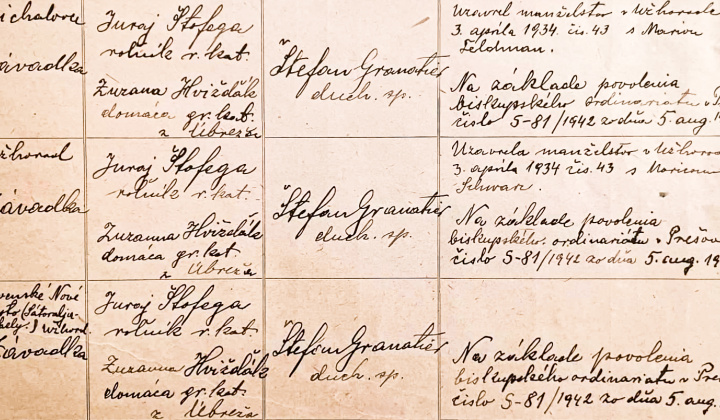 ichalovce
ávadka
Juraj Štofega
roľník r. kat.
Zuzana Hvižďák
domáca gr. kat.
z Úbreža
Štefan Granatier
duch. sp.
Uzavrel manželstvo v Užhorode
3. apríla 1934 čís. 43 s Mariou
Feldman.
Na základe povolenia
biskupského ordinariatu v
číslo S-81/1942 zo dňa 5. aug. 19
žhorod
ávadka
Juraj Štofega
roľník r. kat.
Zuzanna Hvižďák
domáca gr. kat.
z Úbreža
Štefan Granatier
duch. sp.
Uzavrela manželstvo v Užhorode
3. apríla 1934 čís. 43 s
Schwarz.
Na základe povolenia
biskupského ordinariátu v Prešove
číslo S-81/1942 zo dňa 5. aug. 19
venské Nové
sto (Sátoralja-
hely.) Užhorod
ávadka
Juraj Štofega
roľník r. kat.
Zuzanna Hvižďák
domáca gr. kat.
z Úbreža
Štefan Granatier
duch. sp.
Na základe povolenia
biskupského ordinariátu v Preš
číslo S-81/1942 zo dňa 5. aug.